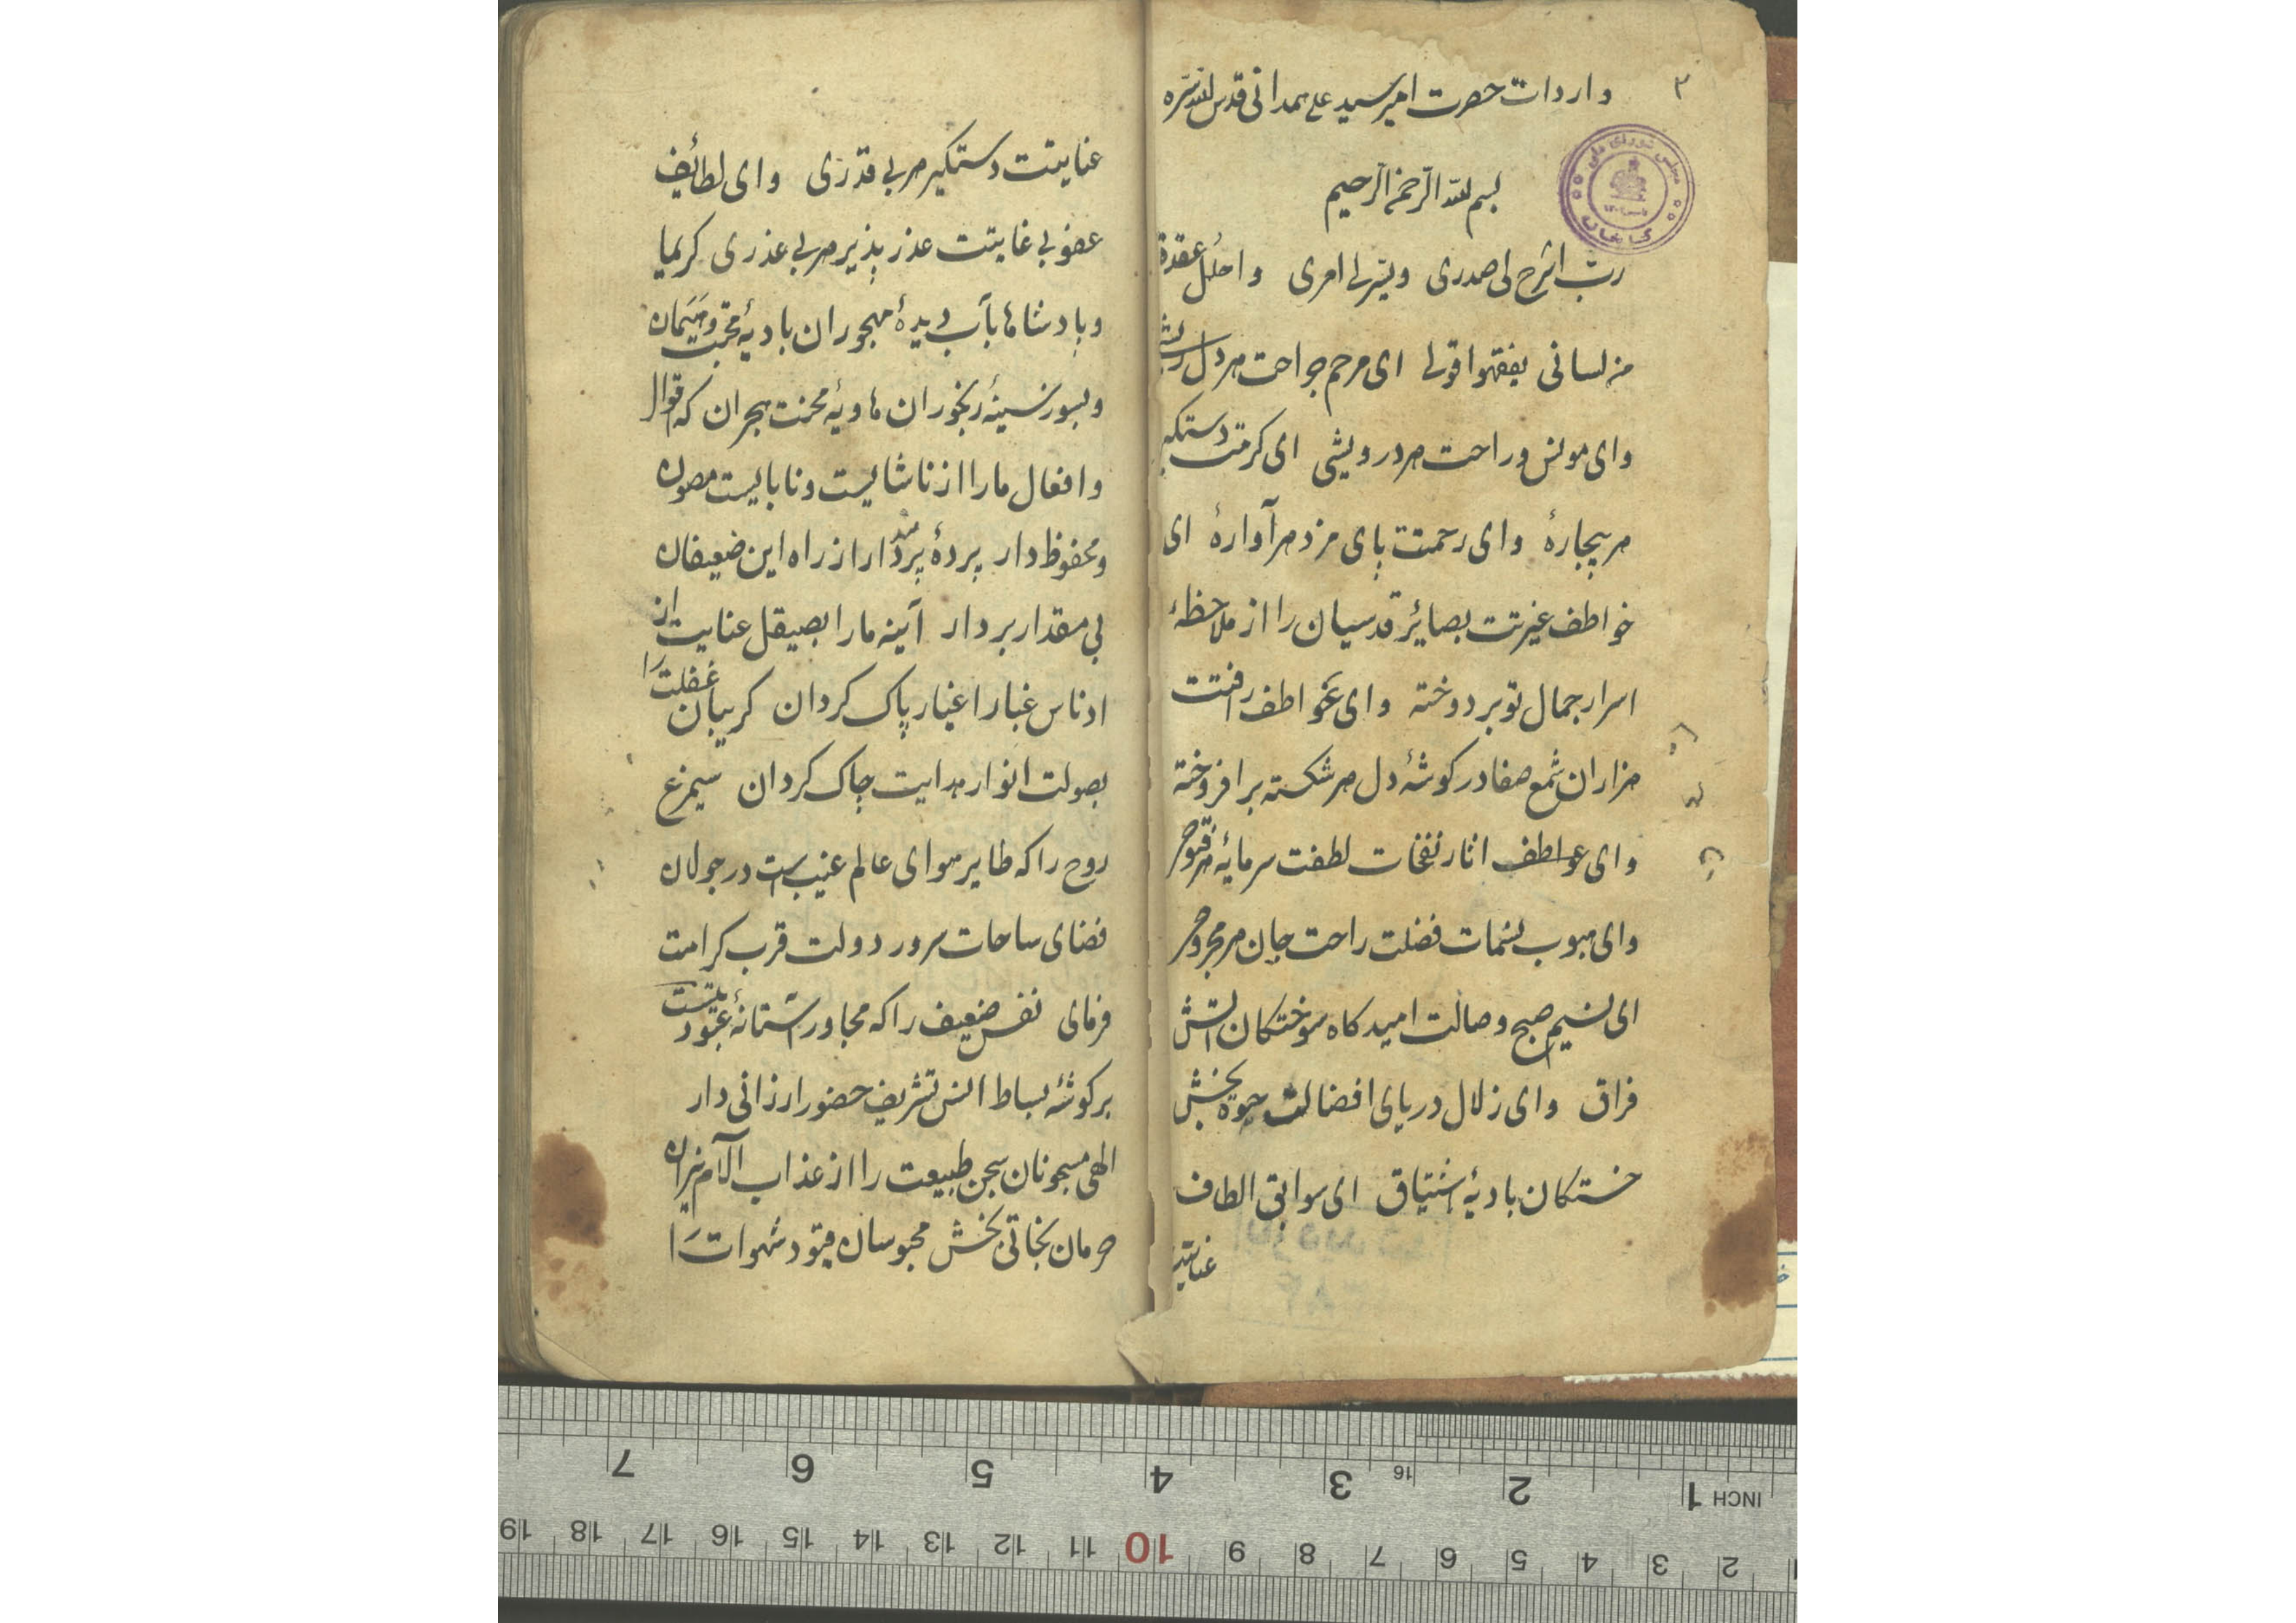 ۳
واردات حضرت امیر سید علی همدانی قدس الله سره
مجلس شورای ملی
کتابخانه
بسم الله الرحمن الرحیم
رب اشرح لی صدری ویسر لی امری واحلل عقدة
من لسانی یفقهوا قولی ای مرحم جراحت هر دل ریش
وای مونس وراحت هر درویشی ای کرمت دستکیر
هر بیچارهٔ وای رحمتت پای مزد هر آوارهٔ ای
خواطف غیرتت بصائر قدسیان را از ملاحظهٔ
اسرار جمال تو بر دوخته وای عواطف رافتت
هزاران شمع صفا در کوشهٔ دل هر شکسته بر افروخته
وای عواطف اثار نفخات لطفت سرمایهٔ هر فتوح
وای هبوب نسمات فضلت راحت جان هر مجروح
ای نسیم صبح وصالت امیدکاه سوختکان آتش
فراق وای زلال دریای افضالت حیوة بخش
خستکان بادیهٔ اشتیاق ای سوابق الطاف
عنایتت
عنایتت دستکیر هر بی قدری وای لطائف
عفو بی غایتت عذر پذیر هر بی عذری کریما
وپادشاها بآب دیدهٔ مهجوران بادیهٔ محبت ومتیمان
وبسوز سینهٔ رنجوران هاویهٔ محنت هجران که اقوال
وافعال ما را از ناشایست ونابایست مصون
ومحفوظ دار پردهٔ پندار را از راه این ضعیفان
بی مقدار بردار آینه ما را بصیقل عنایت از
ادناس غبار اغیار پاک کردان کریبان غفلت را
بصولت انوار هدایت چاک کردان سیمرغ
روح را که طایر هوای عالم غیب است در جولان
فضای ساحات سرور دولت قرب کرامت
فرمای نفس ضعیف را که مجاور آستانهٔ عبودیتست
بر کوشهٔ بساط انس تشریف حضور ارزانی دار
الهی مسجونان سجن طبیعت را از عذاب آلام نیران
حرمان نجاتی بخش محبوسان قیود شهوات را
1 INCH 2 3 4 5 6 7
16
2 3 4 5 6 7 8 9 10 11 12 13 14 15 16 17 18 19